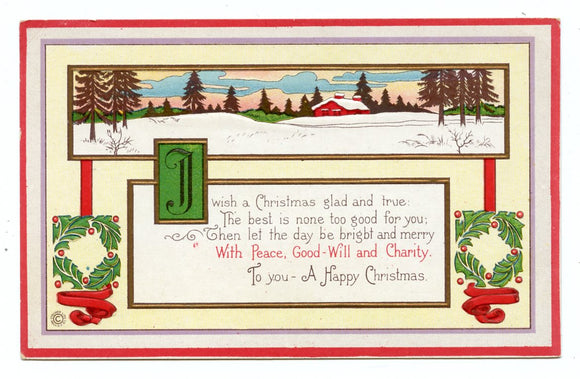 I wish a Christmas glad and true:
The best is none too good for you;
Then let the day be bright and merry
With Peace, Good-Will and Charity.
To you- A Happy Christmas.
©